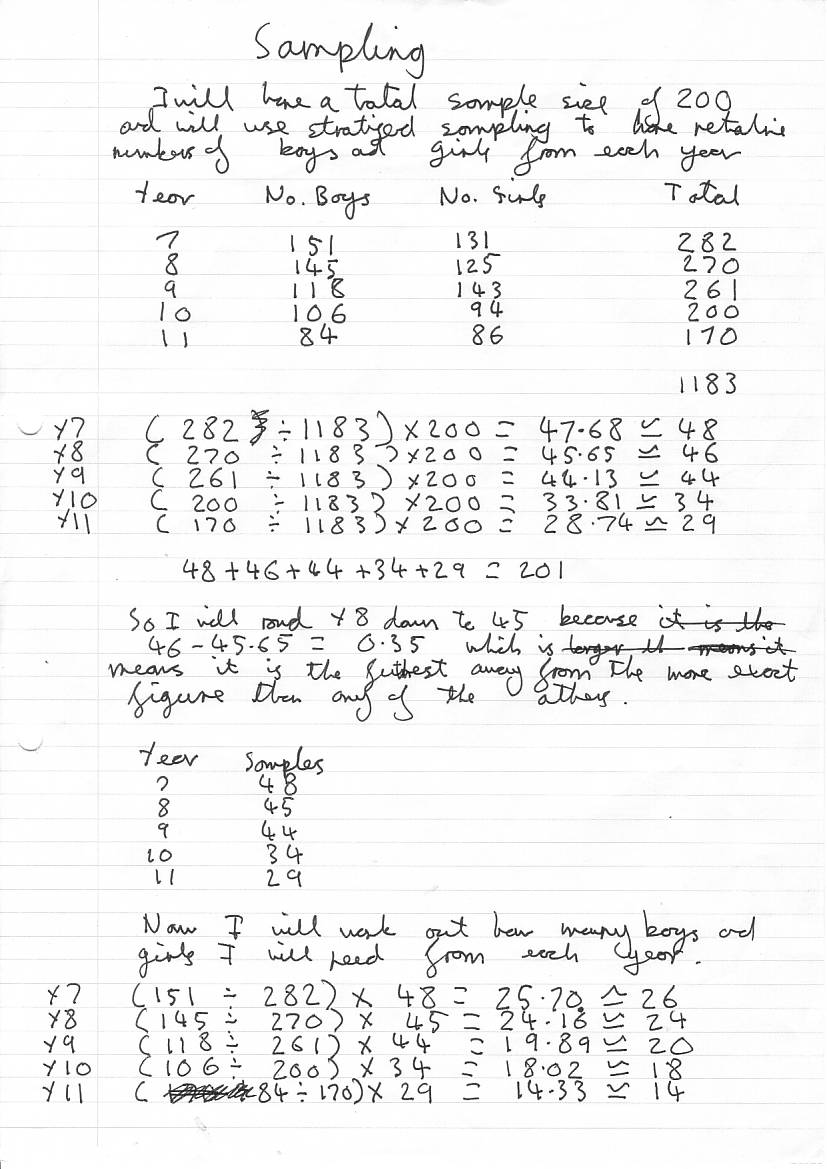 Sampling
I will have a total sample size of 200
and will use stratified sampling to have retative
numbers of boys and girls from each year
Year No. Boys No. Girls Total
7 151 131 282
8 145 125 270
9 118 143 261
10 106 94 200
11 84 86 170
1183
Y7 ( 282 ÷ 1183 ) × 200 = 47.68 ≃ 48
Y8 ( 270 ÷ 1183 ) × 200 = 45.65 ≃ 46
Y9 ( 261 ÷ 1183 ) × 200 = 44.13 ≃ 44
Y10 ( 200 ÷ 1183 ) × 200 = 33.81 ≃ 34
Y11 ( 170 ÷ 1183 ) × 200 = 28.74 ≃ 29
48 + 46 + 44 + 34 + 29 = 201
So I will round Y8 down to 45 because it is the
46 - 45.65 = 0.35 which is larger th means it
means it is the futhest away from the more exact
figure then any of the others.
Year Samples
7 48
8 45
9 44
10 34
11 29
Now I will work out how many boys and
girls I will need from each year.
Y7 ( 151 ÷ 282 ) × 48 = 25.70 ≃ 26
Y8 ( 145 ÷ 270 ) × 45 = 24.16 ≃ 24
Y9 ( 118 ÷ 261 ) × 44 = 19.89 ≃ 20
Y10 ( 106 ÷ 200 ) × 34 = 18.02 ≃ 18
Y11 ( 84 ÷ 170 ) × 29 = 14.33 ≃ 14